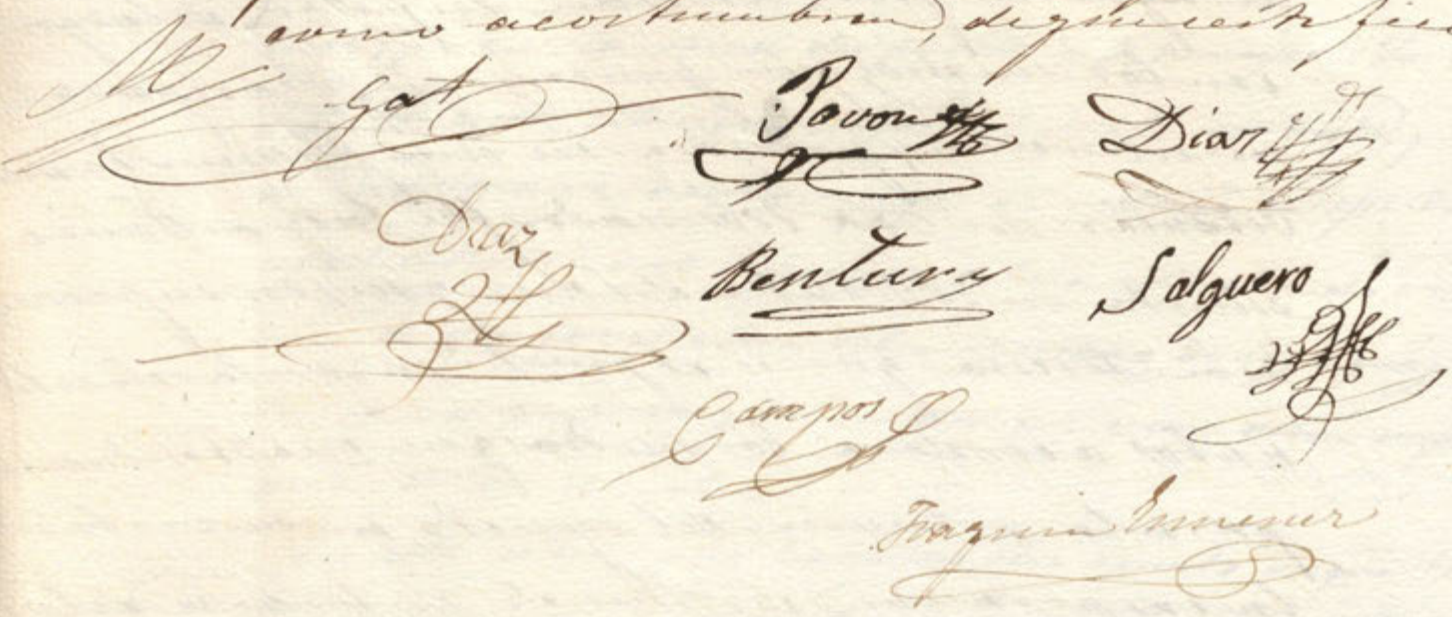 como acostumbran, de que certifico
Gat Pavon Diaz
Diaz Bentura Salguero
Campos
Joaquin Ximenez